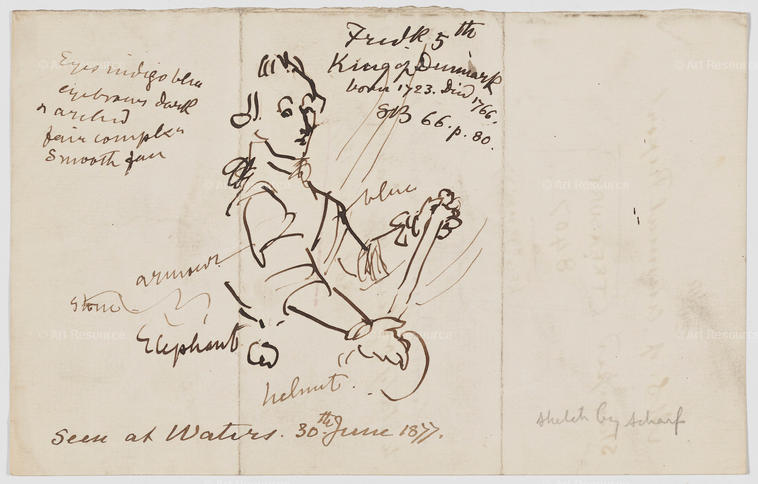 Fredk 5th
King of Denmark
born 1723. Died 1766.
SB 66. p. 80.
Eyes indigo blue
eyebrows dark
& arched
fair complex
Smooth face
blue
armour
stone
Elephant
helmet.
Seen at Waters. 30th June 1877.
sketch by Scharf
© Art Resource